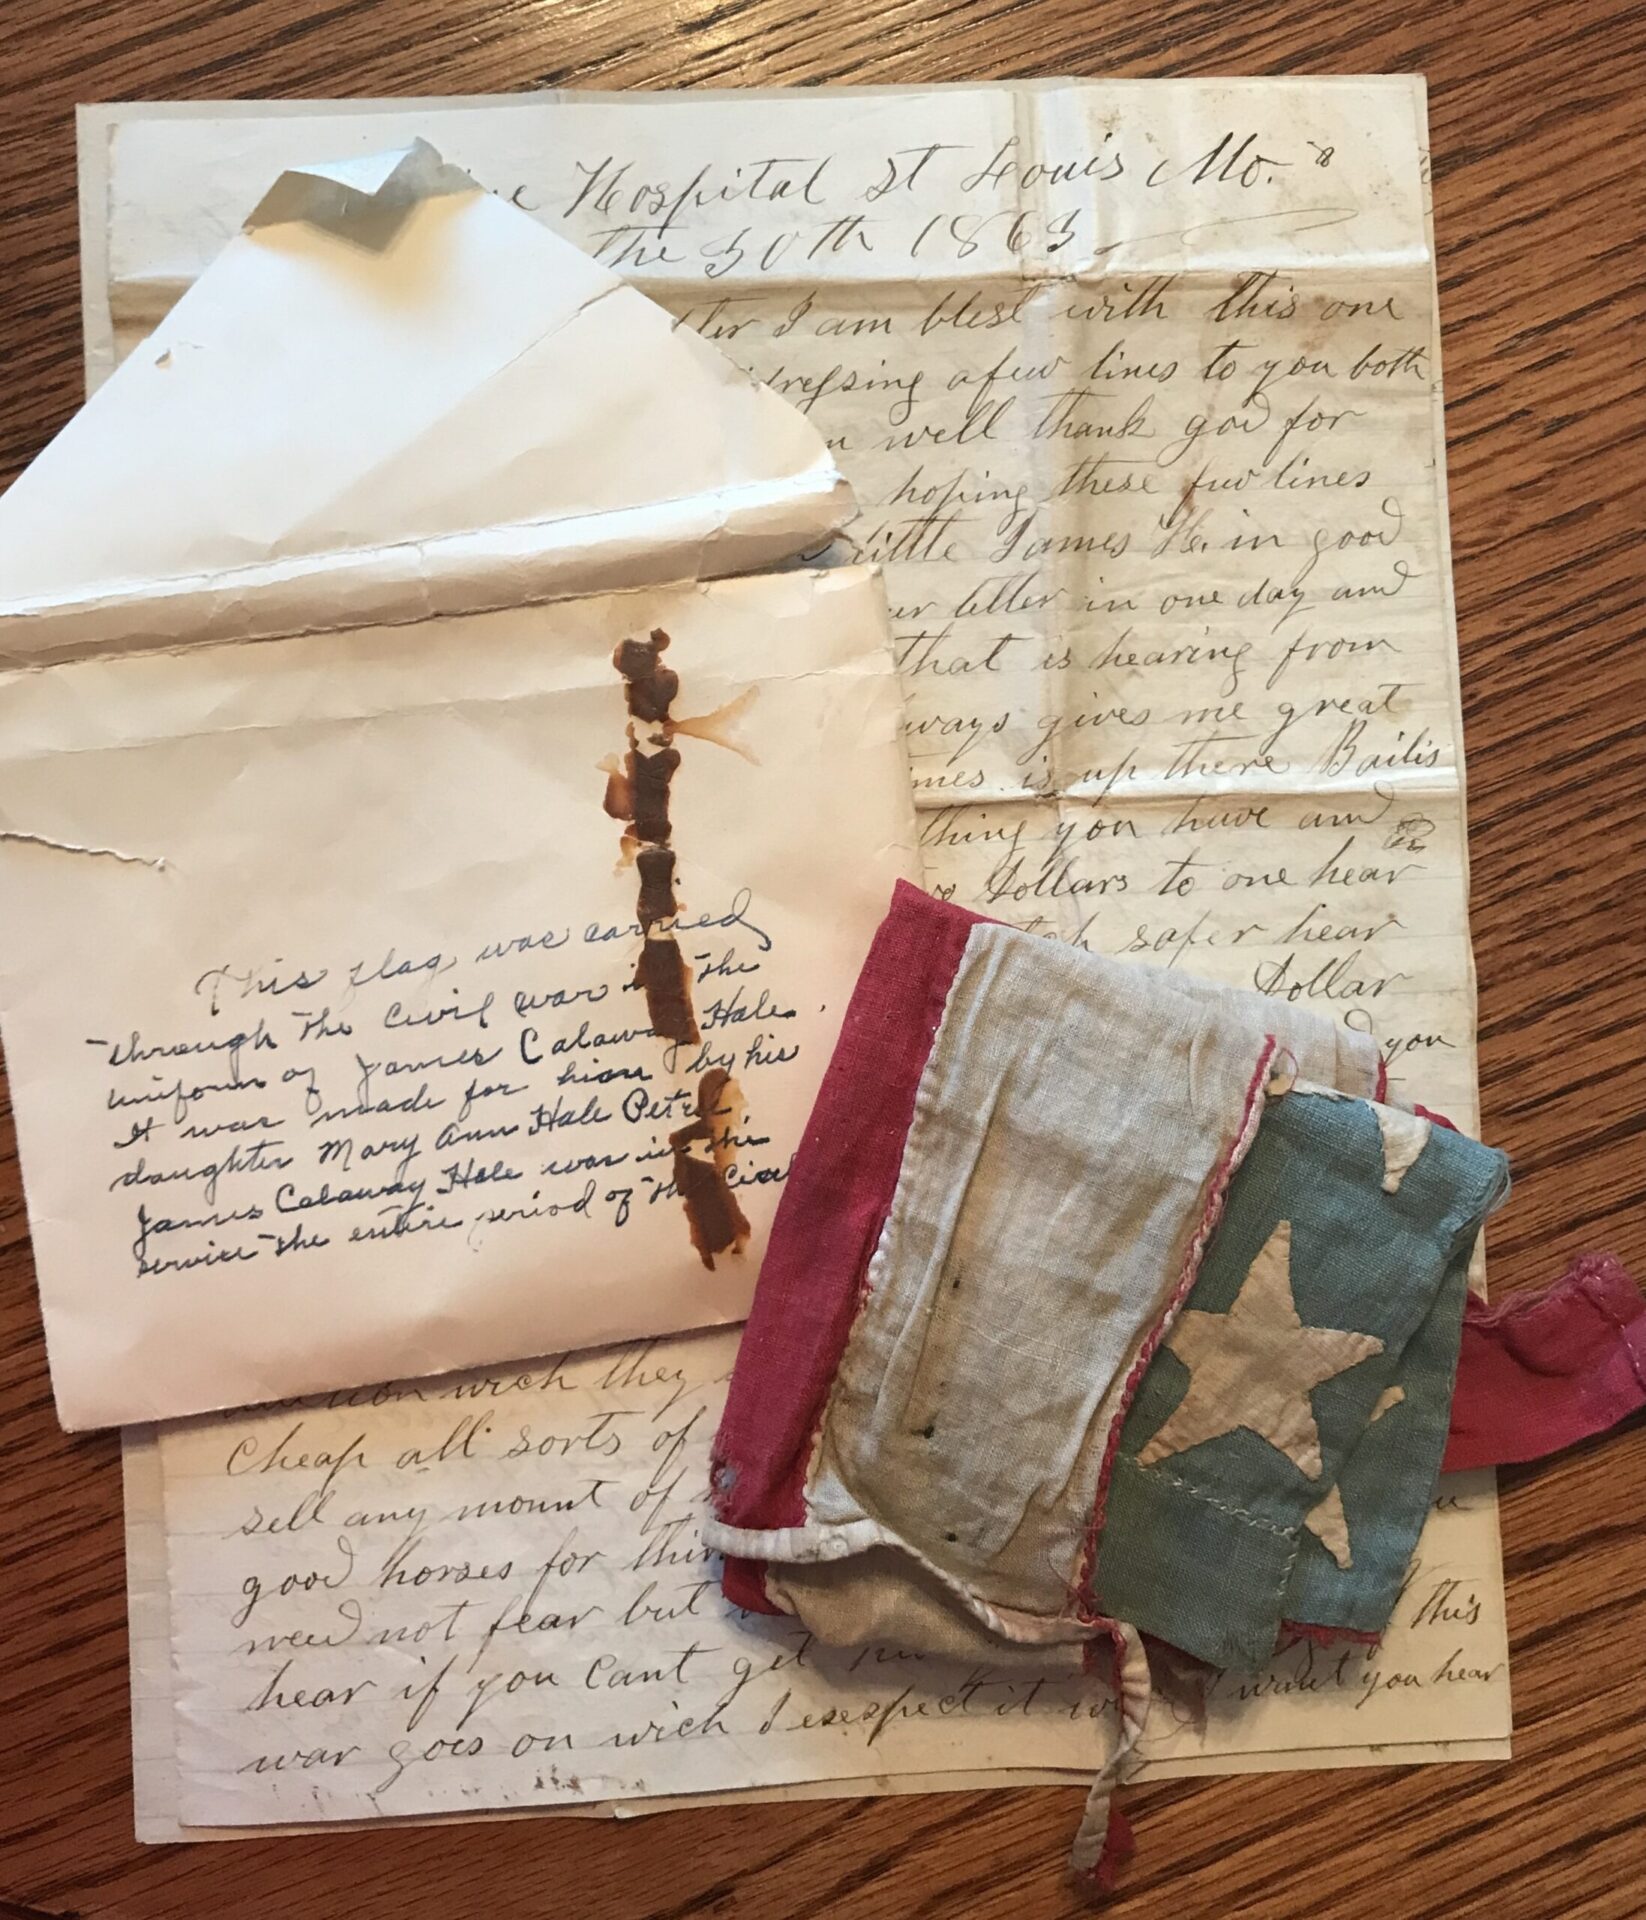 Hospital St Louis Mo.
the 30th 1863
I am blest with this one
afew lines to you both
well thank god for
hoping these few lines
little James H. in good
letter in one day and
that is hearing from
gives me great
is up there Bailis
thing you have and
Dollars to one hear
safer hear
Dollar
you
This flag was carried
through the Civil war in the
uniform of James Calaway Hale.
It was made for him by his
daughter Mary Ann Hale
James Calaway Hale was in the
service the entire period of the Civil
wich they
Cheap all sorts of
sell any mount of
good horses for
need not fear but
this
hear if you Cant get
want you hear
war goes on wich I exspect it